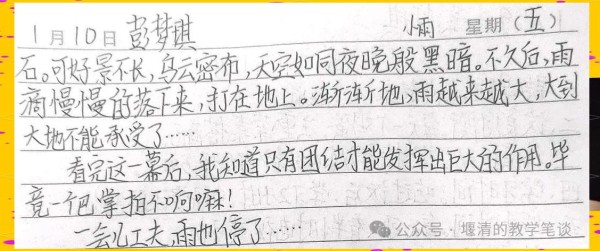 1月10日 彭梦琪 小雨 星期(五)
石。可好景不长,乌云密布,天空如同夜晚般黑暗。不久后,雨
滴慢慢的落下来,打在地上。渐渐地,雨越来越大,大到
大地不能承受了……
看完这一幕后,我知道只有团结才能发挥出巨大的作用。毕
竟一个巴掌拍不响嘛!
一会儿工夫,雨也停了……
公众号·堰清的教学笔谈